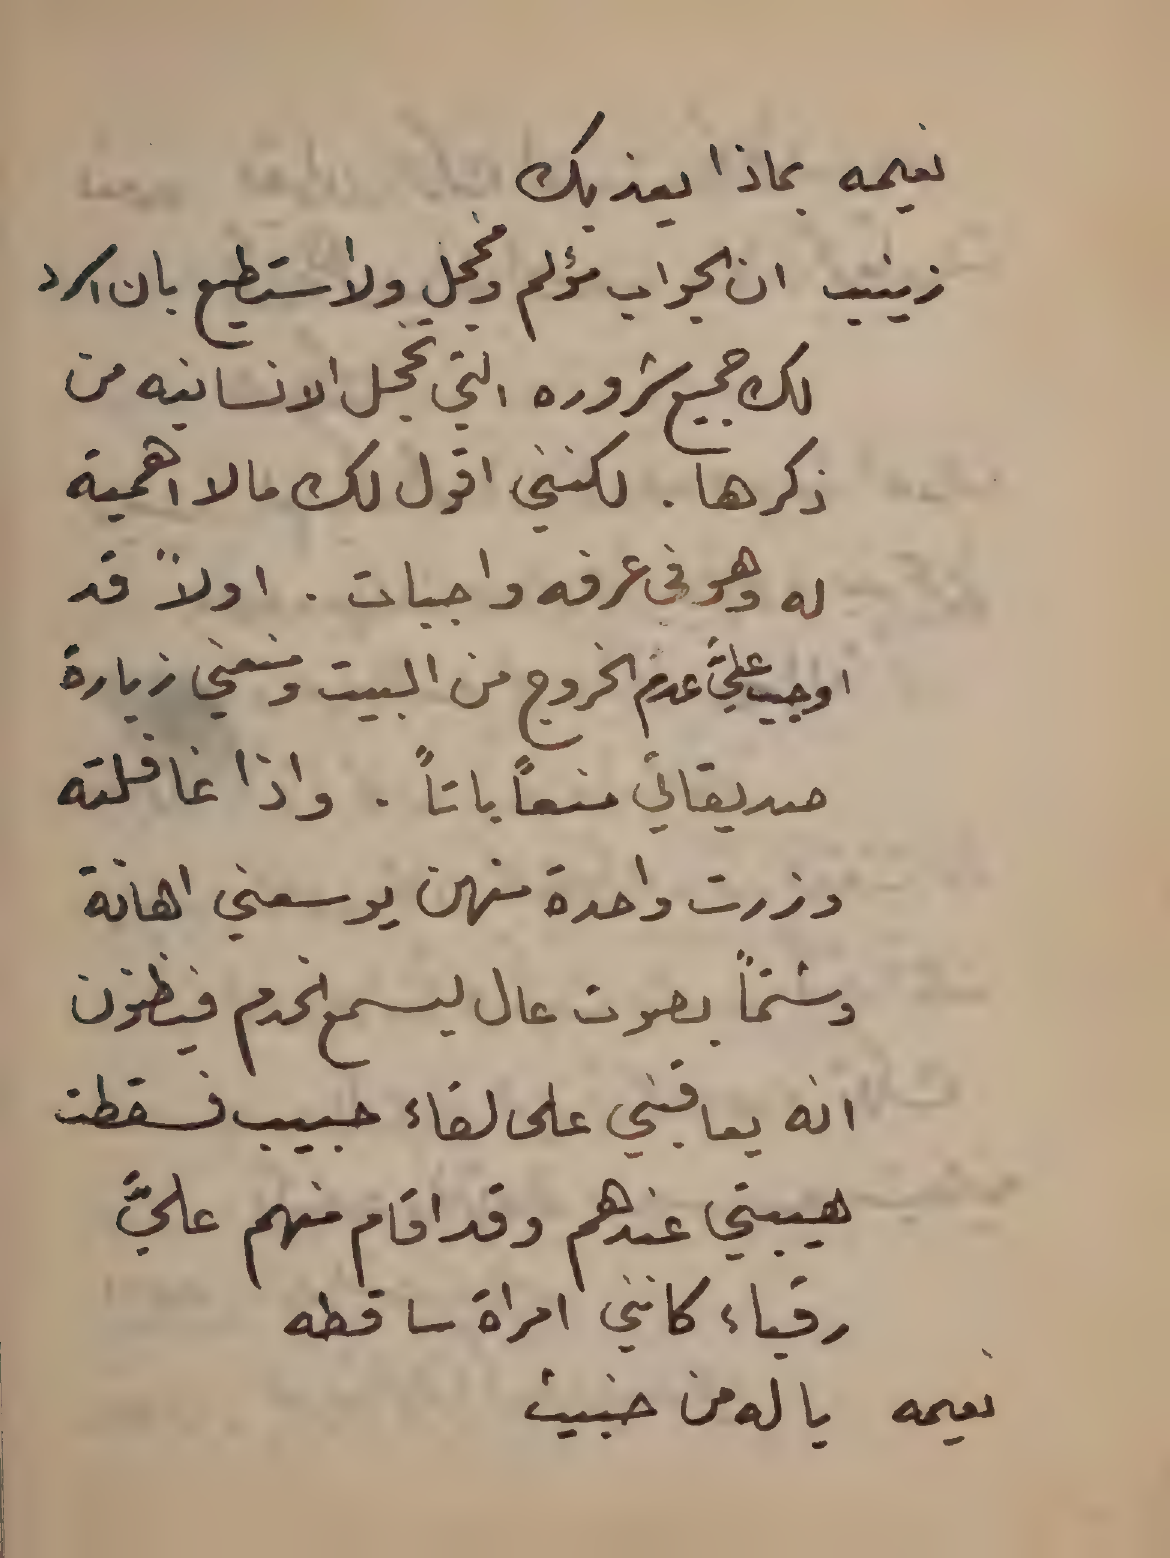 نعيمه بماذا يعذبك
زينب ان الجواب مؤلم ومخجل ولا استطيع بان اسرد
لك جميع شروره التي تخجل الانسانيه من
ذكرها . لكنني اقول لك مالا اهمية
له وهو في عرفه واجبات . اولاً قد
اوجب عليَّ عدم الخروج من البيت ومنعني زيارة
صديقاتي منعاً باتاً . واذا غافلته
وزرت واحدة منهن يوسعني اهانة
وشتماً بصوت عال ليسمع الخدم فيظنون
انه يعاقبني على لقاء حبيب فسقطت
هيبتي عندهم وقد اقام منهم عليَّ
رقباء كانني امراة ساقطه
نعيمه يا له من خبيث